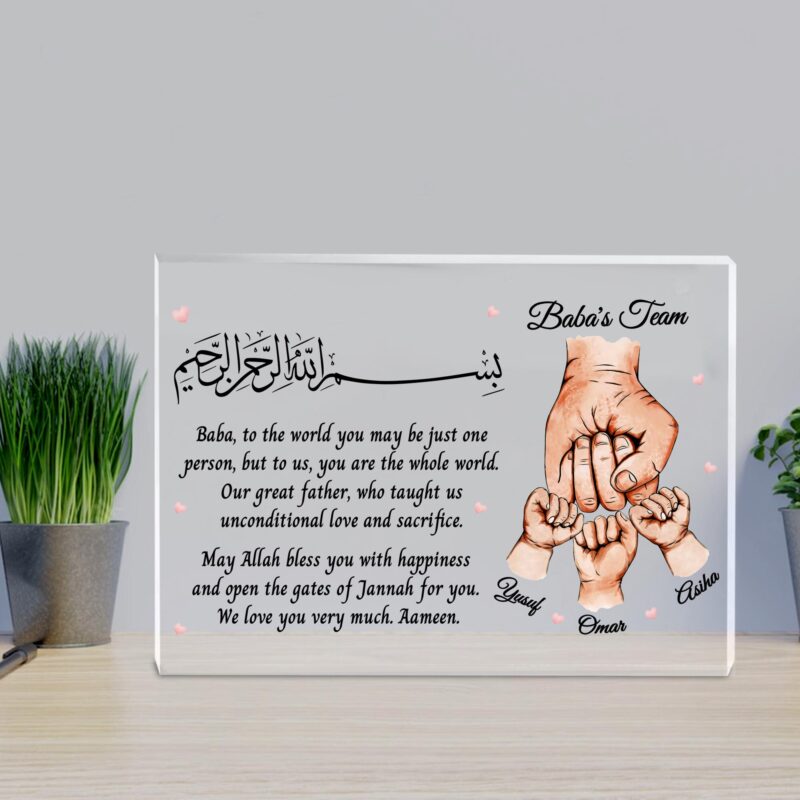 بِسْمِ اللَّهِ الرَّحْمَٰنِ الرَّحِيمِ
Baba, to the world you may be just one
person, but to us, you are the whole world.
Our great father, who taught us
unconditional love and sacrifice.
May Allah bless you with happiness
and open the gates of Jannah for you.
We love you very much. Aameen.
Baba's Team
Yusuf
Omar
Asiha